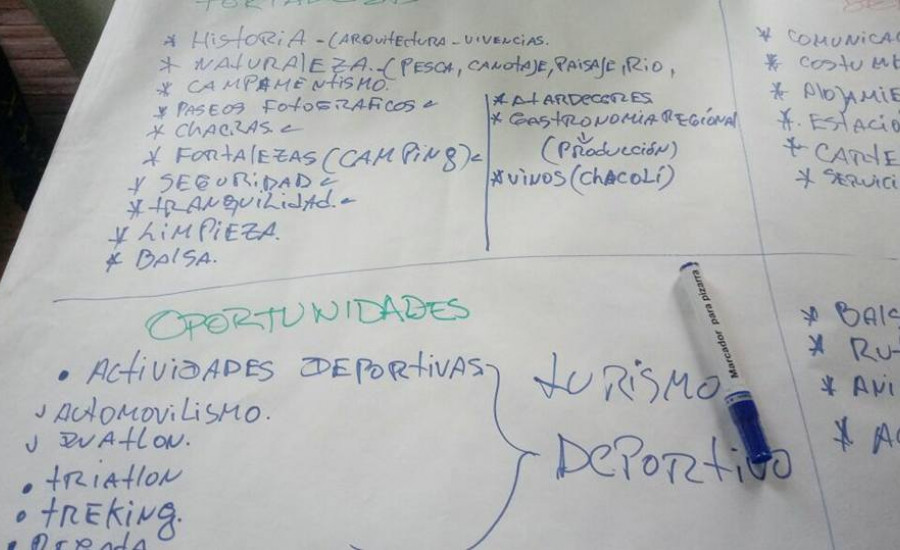 FORTALEZAS
* HISTORIA - (ARQUITECTURA - VIVENCIAS.
* NATURALEZA - (PESCA, CANOTAJE, PAISAJE, RIO,
* CAMPAMENTISMO.
* PASEOS FOTOGRAFICOS
* CHACRAS.
* FORTALEZAS (CAMPING)
* SEGURIDAD
* TRANQUILIDAD.
* LIMPIEZA.
* BALSA.
* ATARDECERES
* GASTRONOMIA REGIONAL
(PRODUCCIÓN)
* VINOS (CHACOLÍ)
* COMUNICA
* COSTUM
* ALOJAMIE
* ESTACIO
* CARTE
* SERVICI
OPORTUNIDADES
• ACTIVIDADES DEPORTIVAS
AUTOMOVILISMO.
DUATLON.
• TRIATLON
• TREKING.
TURISMO
DEPORTIVO
Marcador para pizarra
* BALS
* RU
* ANI
* AC